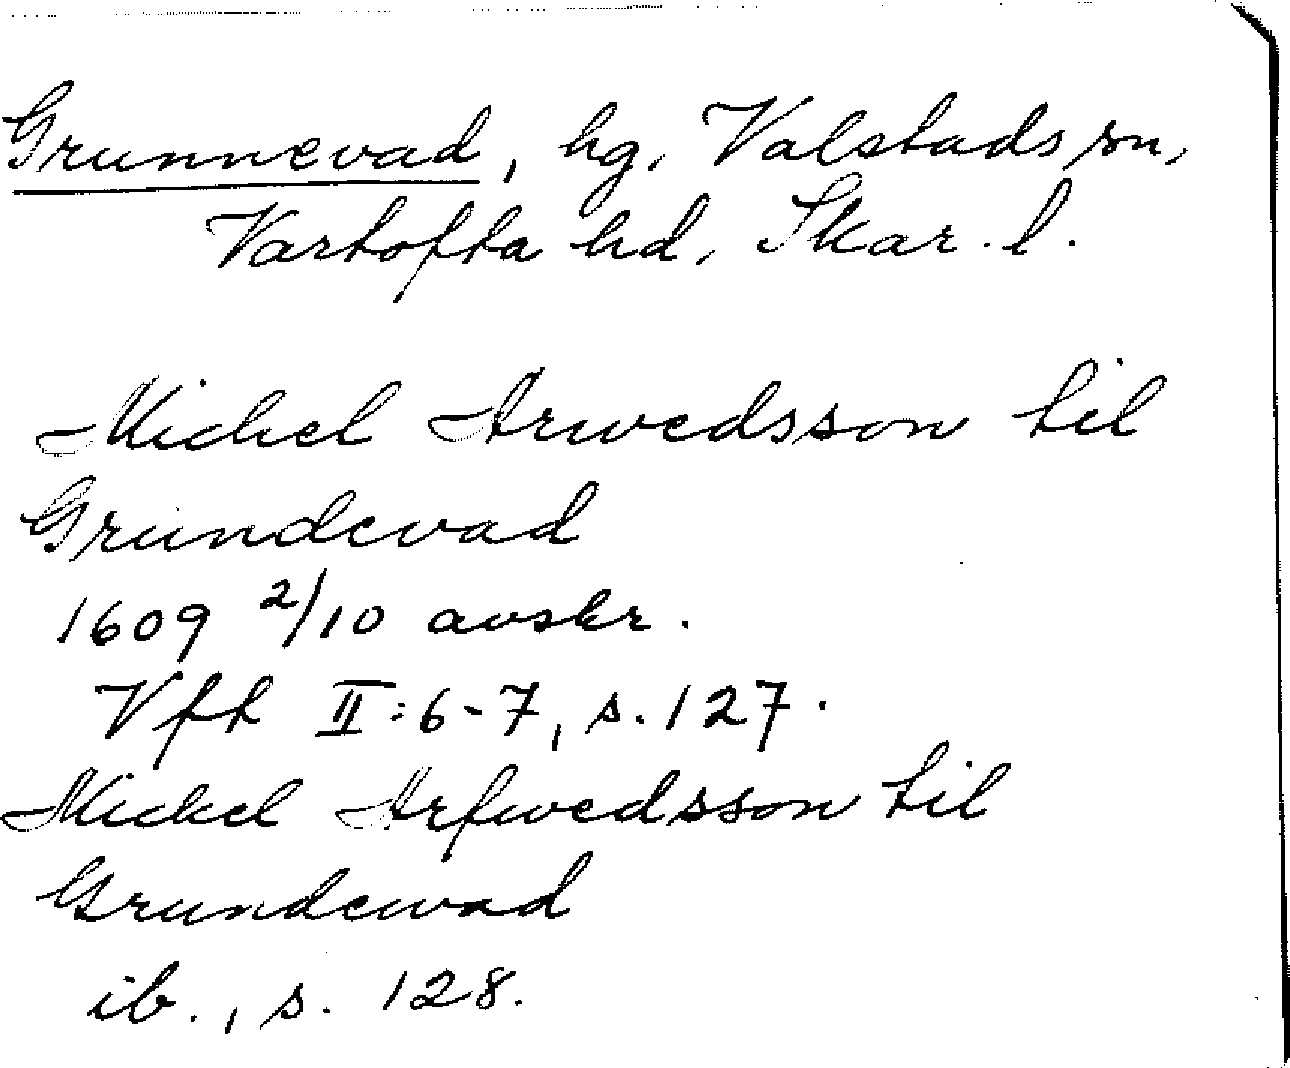 Grunnevad, hg, Valstads sn,
Vartofta hd, Skar. l.
Mickel Arwedsson til
Grundevad
1609 2/10 avskr.
Vft II:6-7, s. 127.
Mickel Arfwedsson til
Grundewad
ib., s. 128.